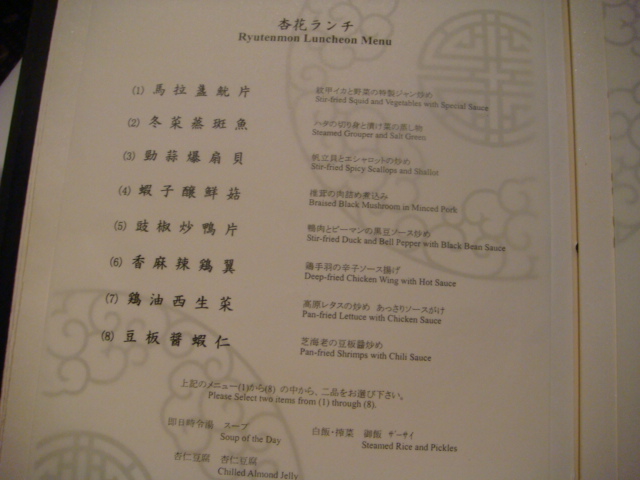 杏花ランチ
Ryutenmon Luncheon Menu
(1) 馬拉盞魷片
紋甲イカと野菜の特製ジャン炒め
Stir-fried Squid and Vegetables with Special Sauce
(2) 冬菜蒸斑魚
ハタの切り身と漬け菜の蒸し物
Steamed Grouper and Salt Green
(3) 勁蒜爆扇貝
帆立貝とエシャロットの炒め
Stir-fried Spicy Scallops and Shallot
(4) 蝦子釀鮮菇
椎茸の肉詰め煮込み
Braised Black Mushroom in Minced Pork
(5) 豉椒炒鴨片
鴨肉とピーマンの黒豆ソース炒め
Stir-fried Duck and Bell Pepper with Black Bean Sauce
(6) 香麻辣鶏翼
鶏手羽の辛子ソース揚げ
Deep-fried Chicken Wing with Hot Sauce
(7) 鶏油西生菜
高原レタスの炒め あっさりソースがけ
Pan-fried Lettuce with Chicken Sauce
(8) 豆板醬蝦仁
芝海老の豆板醤炒め
Pan-fried Shrimps with Chili Sauce
上記のメニュー(1)から(8) の中から、二品をお選び下さい。
Please Select two items from (1) through (8).
即日時令湯 スープ
Soup of the Day
白飯・搾菜 御飯 ザーサイ
Steamed Rice and Pickles
杏仁豆腐 杏仁豆腐
Chilled Almond Jelly